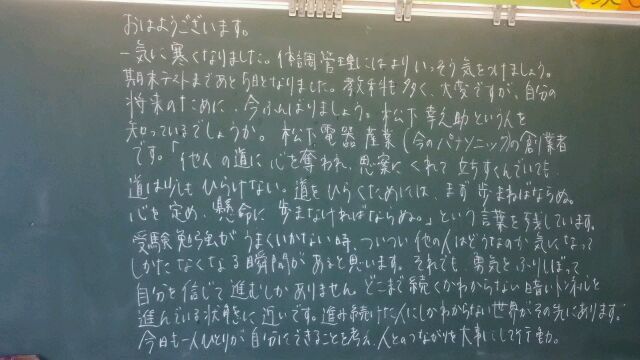 おはようございます。
一気に寒くなりました。体調管理にはよりいっそう気をつけましょう。
期末テストまであと5日となりました。教科も多く、大変ですが、自分の
将来のために、今ふんばりましょう。松下幸之助という人を
知っているでしょうか。松下電器産業(今のパナソニック)の創業者
です。「他人の道に心を奪われ、思案にくれて立ちすくんでいても、
道は少しもひらけない。道をひらくためには、まず歩まねばならぬ。
心を定め、懸命に歩まなければならぬ。」という言葉を残しています。
受験勉強がうまくいかない時、ついつい他の人はどうなのか気になって
しかたなくなる瞬間があると思います。それでも、勇気をふりしぼって
自分を信じて進むしかありません。どこまで続くかわからない暗いトンネルを
進んでいる状態に近いです。進み続けた人にしかわからない世界がその先にあります。
今日も一人ひとりが自分にできることを考え、人とのつながりを大事にして行動。